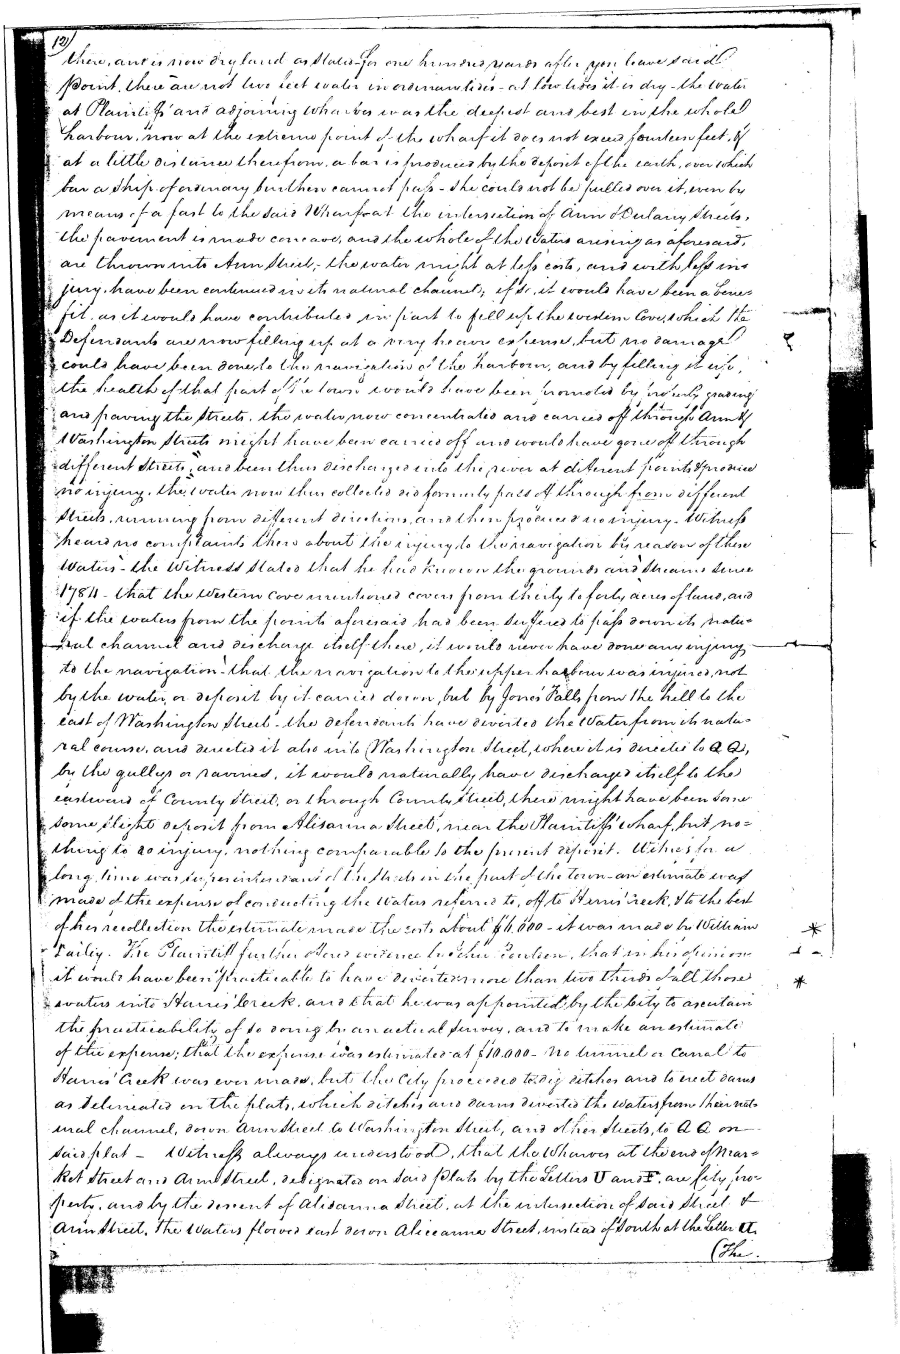 12)
there, and is now dry land as stated - for one hundred yards after you leave said
Point, there are not two feet water in ordinary tides - at low tides it is dry - the water
at Plaintiffs' and adjoining wharves was the deepest and best in the whole
harbour, now at the extreme point of the wharf it does not exceed fourteen feet, &
at a little distance therefrom, a bar is produced by the deposit of the earth, over which
bar a ship of ordinary burthen cannot pass - she could not be pulled over it, even by
means of a fast to the said Wharf - at the intersection of Ann & Dulany Streets,
the pavement is made concave, and the whole of the waters arising as aforesaid,
are thrown into Ann Street, - the water might at less costs, and with less in=
jury, have been continued in its natural channel; if so, it would have been a bene=
fit, as it would have contributed in part to fill up the western Cove, which the
Defendants are now filling up at a very heavy expense, but no damage
could have been done to the navigation of the harbour, and by filling it up,
the health of that part of the town would have been promoted by properly grading
and paving the streets, the water now concentrated and carried off through Ann &
Washington Streets might have been carried off and would have gone off through
different Streets, and been thus discharged into the river at different points & produce
no injury, the water now thus collected did formerly pass off through from different
Streets, running from different directions, and then produced no injury - Witness
heard no complaints there about the injury to the navigation by reason of these
waters - the Witness stated that he had known the grounds and streams since
1784 - that the western cove mentioned covers from thirty to forty acres of land, and
if the waters from the points aforesaid had been suffered to pass down its natu=
ral channel and discharge itself there, it would never have done any injury
to the navigation - that the navigation to the upper harbour was injured, not
by the water or deposit by it carried down, but by Jones' Falls, from the hill to the
east of Washington Street - the defendants have diverted the water from its natu=
ral course, and directed it also into Washington Street, where it is directed to Q Q,
by the gullys or ravines, it would naturally have discharged itself to the
eastward of County Street, or through County Street, there might have been some
some slight deposit from Alisanna Street, near the Plaintiffs' wharf, but no=
thing to do injury, nothing comparable to the present deposit. Witness for a
long time was superintendant of the streets in the part of the town - an estimate was
made of the expense of conducting the Waters referred to, off to Harris' Creek, & to the best
of his recollection the estimate made the costs about $6,000 - it was made by William
The Plaintiff further offered evidence by that in his opinion
it would have been practicable to have diverted more than two thirds of all those
waters into Harris' Creek, and that he was appointed by the City to ascertain
the practicability of so doing by an actual survey, and to make an estimate
of the expense; that the expense was estimated at $10.000 - no tunnel or canal to
Harris' Creek was ever made, but the City proceeded to dig ditches and to erect dams
as delineated on the plats, which ditches and dams diverted the waters from their nat=
ural channel, down Ann Street to Washington Street, and other Streets, to Q Q on
said plat - Witness always understood, that the Wharves at the end of Mar=
ket Street and Ann Street, designated on said plats by the Letters U and F, are City pro=
perty, and by the descent of Alisanna Street, at the intersection of said Street &
Ann Street, the Waters flowed east down Aliceanna Street, instead of South at the Letter U.
(The.